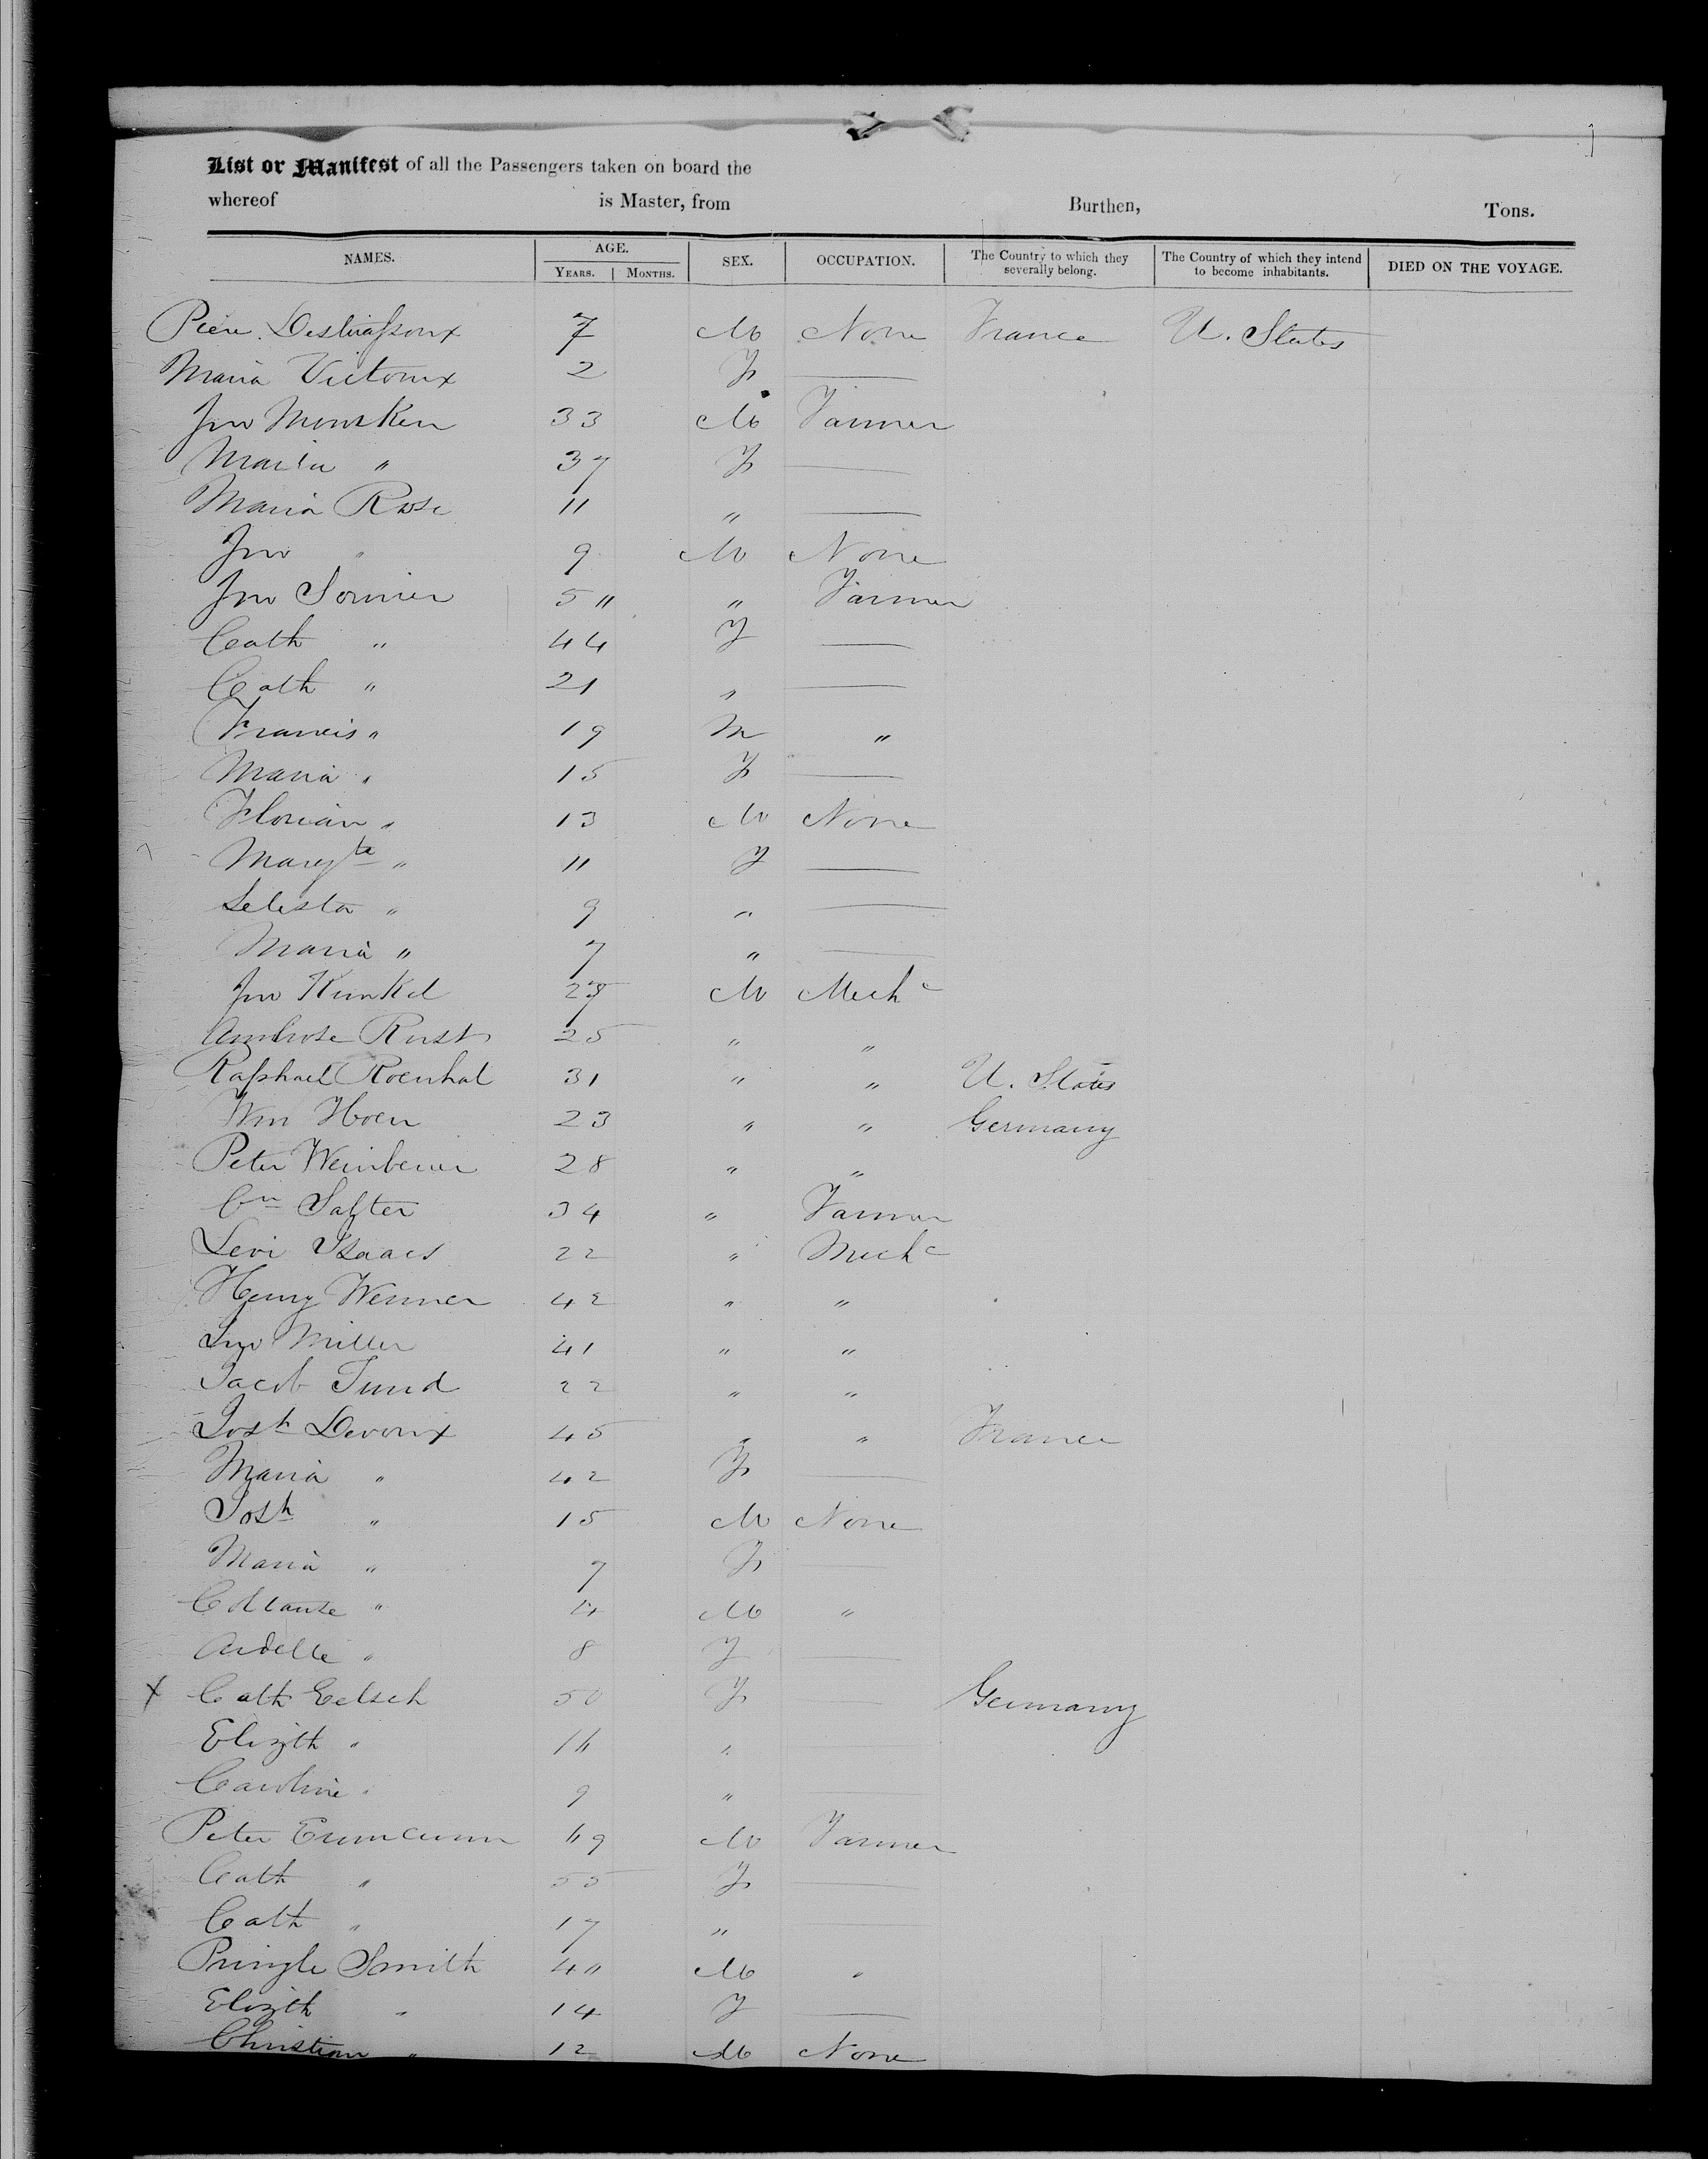 List or Manifest of all the Passengers taken on board the
whereof is Master, from Burthen, Tons.
NAMES. AGE. YEARS. MONTHS. SEX. OCCUPATION. The Country to which they severally belong. The Country of which they intend to become inhabitants. DIED ON THE VOYAGE.
7 M None France U. States
Maria Victorix 2 F —
Jno Monsken 33 M Farmer
Maria " 37 F —
Maria Rose 11 " —
Jno " 9 M None
Jno Sornier 5 " Farmer
Cath " 44 F —
Cath " 21 " —
Francis " 19 M "
Maria " 15 F —
Florian " 13 M None
Margte " 11 F —
Selesta " 9 " —
Maria " 7 " —
Jno Kunkel M Mechc
Ambrose Rust 25 " "
Raphael Roenhal 31 " " U. States
Wm Hoen 23 " " Germany
Peter 28 " "
Cn Salter 34 " Farmer
Levi Isaacs 22 " Mechc
Henry Wenner 42 " "
Jno Miller 41 " "
Jacob 22 " "
Josh Devoux 45 " " France
Maria " 42 F —
Josh " 15 M None
Maria " 7 F —
" 4 M "
Ardelle " 8 F —
X Cath Eelsch 50 F — Germany
Elizth " " —
Caroline " 9 " —
Peter M Farmer
Cath " 55 F —
Cath " 17 " —
Pringle Smith M "
Elizth " 14 F —
Christian " 12 M None